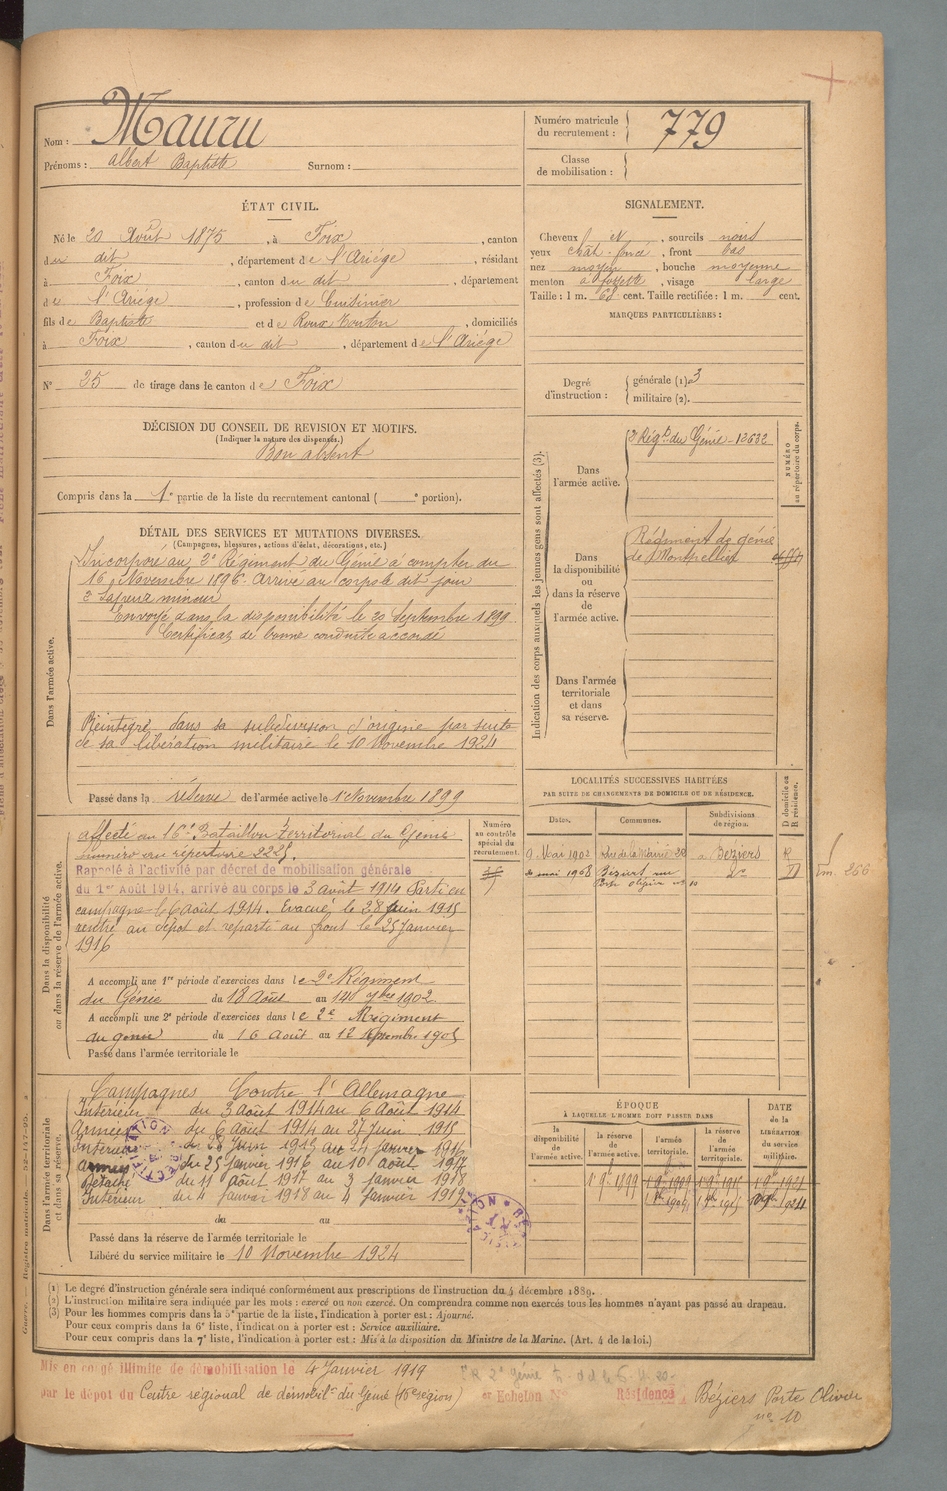 Nom : Mauru
Prénoms : Albert Baptiste Surnom :
Numéro matricule du recrutement : 779
Classe de mobilisation :
ÉTAT CIVIL.
Né le 20 Août 1875, à Foix, canton
du dit, département de l'Ariége, résidant
à Foix, canton du dit, département
de l'Ariége, profession de Cuisinier
fils de Baptiste et de Roux Touton, domiciliés
à Foix, canton du dit, département de l'Ariége
N° 25 de tirage dans le canton de Foix
SIGNALEMENT.
Cheveux et sourcils noirs
yeux chât. foncé, front bas
nez moyen, bouche moyenne
menton à fossette, visage large
Taille : 1 m. 68 cent. Taille rectifiée : 1 m. cent.
MARQUES PARTICULIÈRES :
Degré d'instruction : générale (1). 3
militaire (2).
DÉCISION DU CONSEIL DE REVISION ET MOTIFS.
(Indiquer la nature des dispenses.)
Bon absent
Compris dans la 1e partie de la liste du recrutement cantonal ( e portion).
DÉTAIL DES SERVICES ET MUTATIONS DIVERSES.
(Campagnes, blessures, actions d'éclat, décorations, etc.)
Dans l'armée active.
Incorporé au 2e Régiment du Génie à compter du
16 Novembre 1896. Arrivé au corps le dit jour
2e Sapeur mineur
Envoyé dans la disponibilité le 20 Septembre 1899
Certificat de bonne conduite accordé
Réintégré dans sa subdivision d'origine par suite
de sa libération militaire le 10 Novembre 1924
Passé dans la réserve de l'armée active le 1er Novembre 1899
Indication des corps auxquels les jeunes gens sont affectés (3).
NUMÉRO au répertoire du corps.
Dans l'armée active.
2e Régt du Génie - 12632
Dans la disponibilité ou dans la réserve de l'armée active.
Régiment de génie
de Montpellier
Dans l'armée territoriale et dans sa réserve.
LOCALITÉS SUCCESSIVES HABITÉES
PAR SUITE DE CHANGEMENTS DE DOMICILE OU DE RÉSIDENCE.
Dates. Communes. Subdivisions de région. D domicile ou R résidence.
9 Mai 1902 rue de la Mairie 20 à Béziers R
mai 1908 Béziers rue
Porte olivier no 10
Dans la disponibilité ou dans la réserve de l'armée active.
Numéro au contrôle spécial du recrutement.
affecté au 16e Bataillon territorial du Génie
numéro au répertoire 2225.
Rappelé à l'activité par décret de mobilisation générale
du 1er Août 1914, arrivé au corps le 3 août 1914 Parti en
campagne le 6 août 1914. Evacué le 28 juin 1915
rentré au dépôt et reparti au front le 25 Janvier
1916
A accompli une 1re période d'exercices dans le 2e Régiment
du Génie du 18 Août au 14 7bre 1902
A accompli une 2e période d'exercices dans le 2e Régiment
du génie du 16 Août au 12 Septembre 1905
Passé dans l'armée territoriale le
Dans l'armée territoriale et dans sa réserve.
Campagnes Contre l'Allemagne
Intérieur du 3 août 1914 au 6 Août 1914
Armées du 6 Août 1914 au 27 Juin 1915
Intérieur du 28 Juin 1915 au 24 janvier 1916
Armées du 25 janvier 1916 au 10 août 1917
Détaché du 11 août 1917 au 3 janvier 1918
Intérieur du 4 janvier 1918 au 4 janvier 1919
du au
Passé dans la réserve de l'armée territoriale le
Libéré du service militaire le 10 Novembre 1924
ÉPOQUE
À LAQUELLE L'HOMME DOIT PASSER DANS
la disponibilité de l'armée active. la réserve de l'armée active. l'armée territoriale. la réserve de l'armée territoriale.
DATE de la LIBÉRATION du service militaire.
1 9bre 1899 1 9bre 1909 1 9bre 1915
RECTIFICATION
(1) Le degré d'instruction générale sera indiqué conformément aux prescriptions de l'instruction du 4 décembre 1889.
(2) L'instruction militaire sera indiquée par les mots : exercé ou non exercé. On comprendra comme non exercés tous les hommes n'ayant pas passé au drapeau.
(3) Pour les hommes compris dans la 5e partie de la liste, l'indication à porter est : Ajourné.
Pour ceux compris dans la 6e liste, l'indication à porter est : Service auxiliaire.
Pour ceux compris dans la 7e liste, l'indication à porter est : Mis à la disposition du Ministre de la Marine. (Art. 4 de la loi.)
Mis en congé illimité de démobilisation le 4 Janvier 1919
par le dépôt du Centre régional de démobilon du Génie (16e région) et Echelon No Résidence, Béziers Porte Olivier
no 10